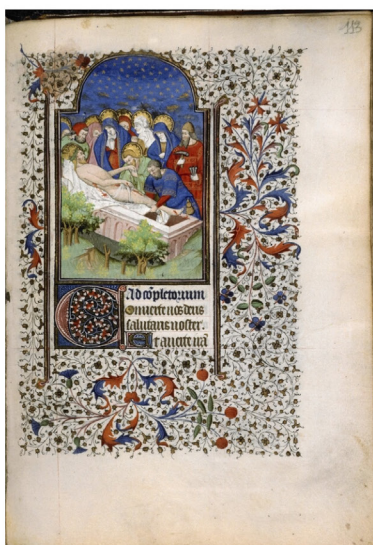 113
Ad cōpletorium
Conuerte nos deus
salutaris noster.
Et auerte irā